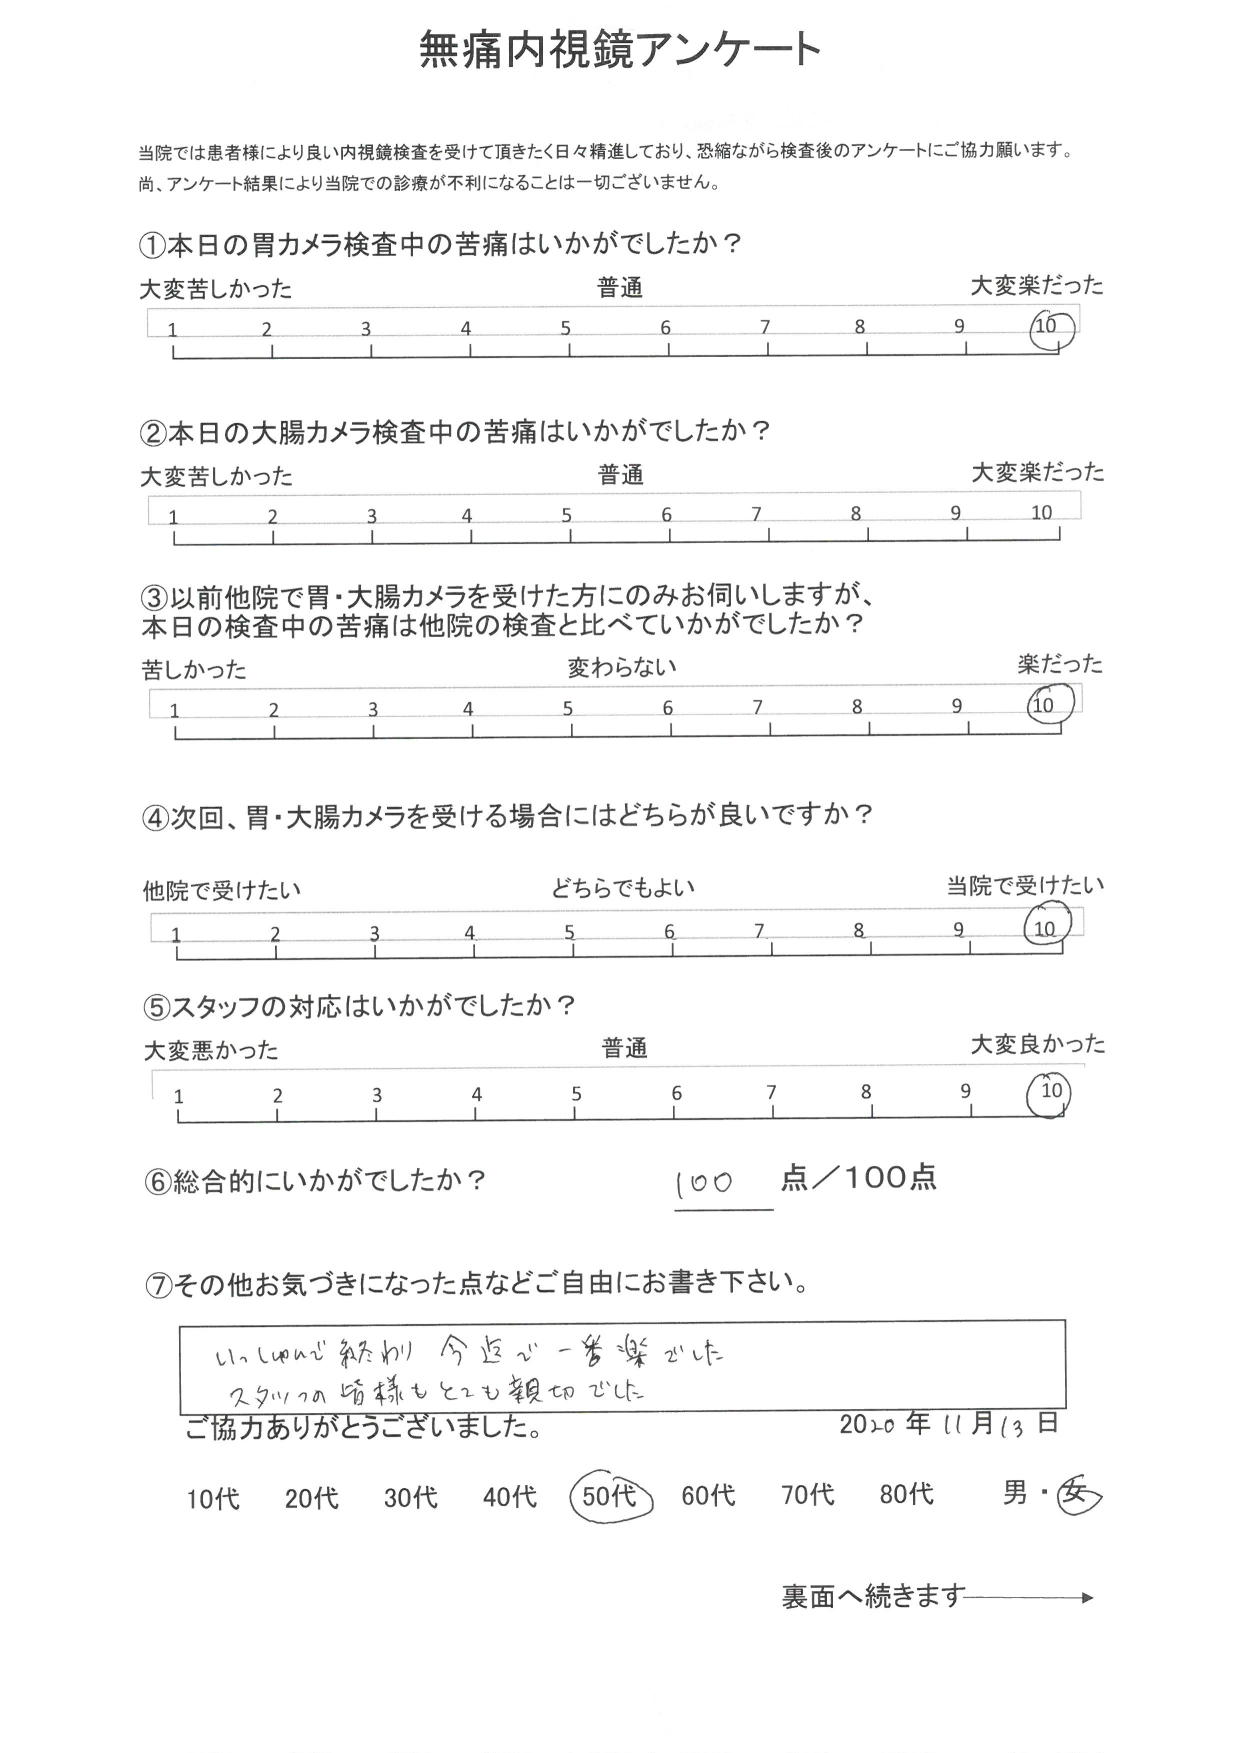 無痛内視鏡アンケート
当院では患者様により良い内視鏡検査を受けて頂きたく日々精進しており、恐縮ながら検査後のアンケートにご協力願います。
尚、アンケート結果により当院での診療が不利になることは一切ございません。
①本日の胃カメラ検査中の苦痛はいかがでしたか？
大変苦しかった 普通 大変楽だった
1 2 3 4 5 6 7 8 9 10
②本日の大腸カメラ検査中の苦痛はいかがでしたか？
大変苦しかった 普通 大変楽だった
1 2 3 4 5 6 7 8 9 10
③以前他院で胃・大腸カメラを受けた方にのみお伺いしますが、
本日の検査中の苦痛は他院の検査と比べていかがでしたか？
苦しかった 変わらない 楽だった
1 2 3 4 5 6 7 8 9 10
④次回、胃・大腸カメラを受ける場合にはどちらが良いですか？
他院で受けたい どちらでもよい 当院で受けたい
1 2 3 4 5 6 7 8 9 10
⑤スタッフの対応はいかがでしたか？
大変悪かった 普通 大変良かった
1 2 3 4 5 6 7 8 9 10
⑥総合的にいかがでしたか？ 100 点／100点
⑦その他お気づきになった点などご自由にお書き下さい。
いっしゅんで終わり 今迄で一番楽でした
スタッフの皆様もとても親切でした
ご協力ありがとうございました。 2020年11月13日
10代 20代 30代 40代 50代 60代 70代 80代 男・女
裏面へ続きます